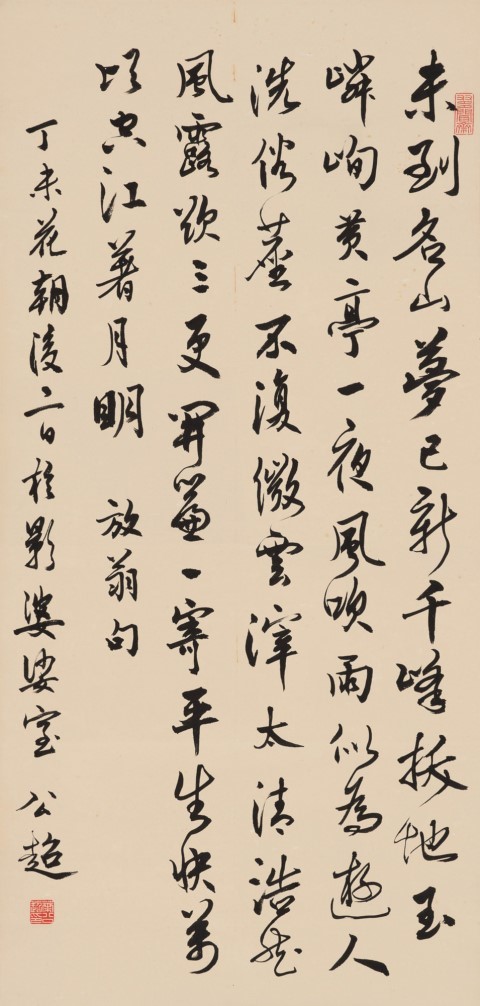 未到名山夢已新千峰拔地玉
嶙峋黃亭一夜風吹雨似為遊人
洗俗塵不復微雲滓太清浩然
風露欲三更開簾一寄平生快萬
頃空江著月明 放翁句
丁未花朝後二日於影婆娑室 公超